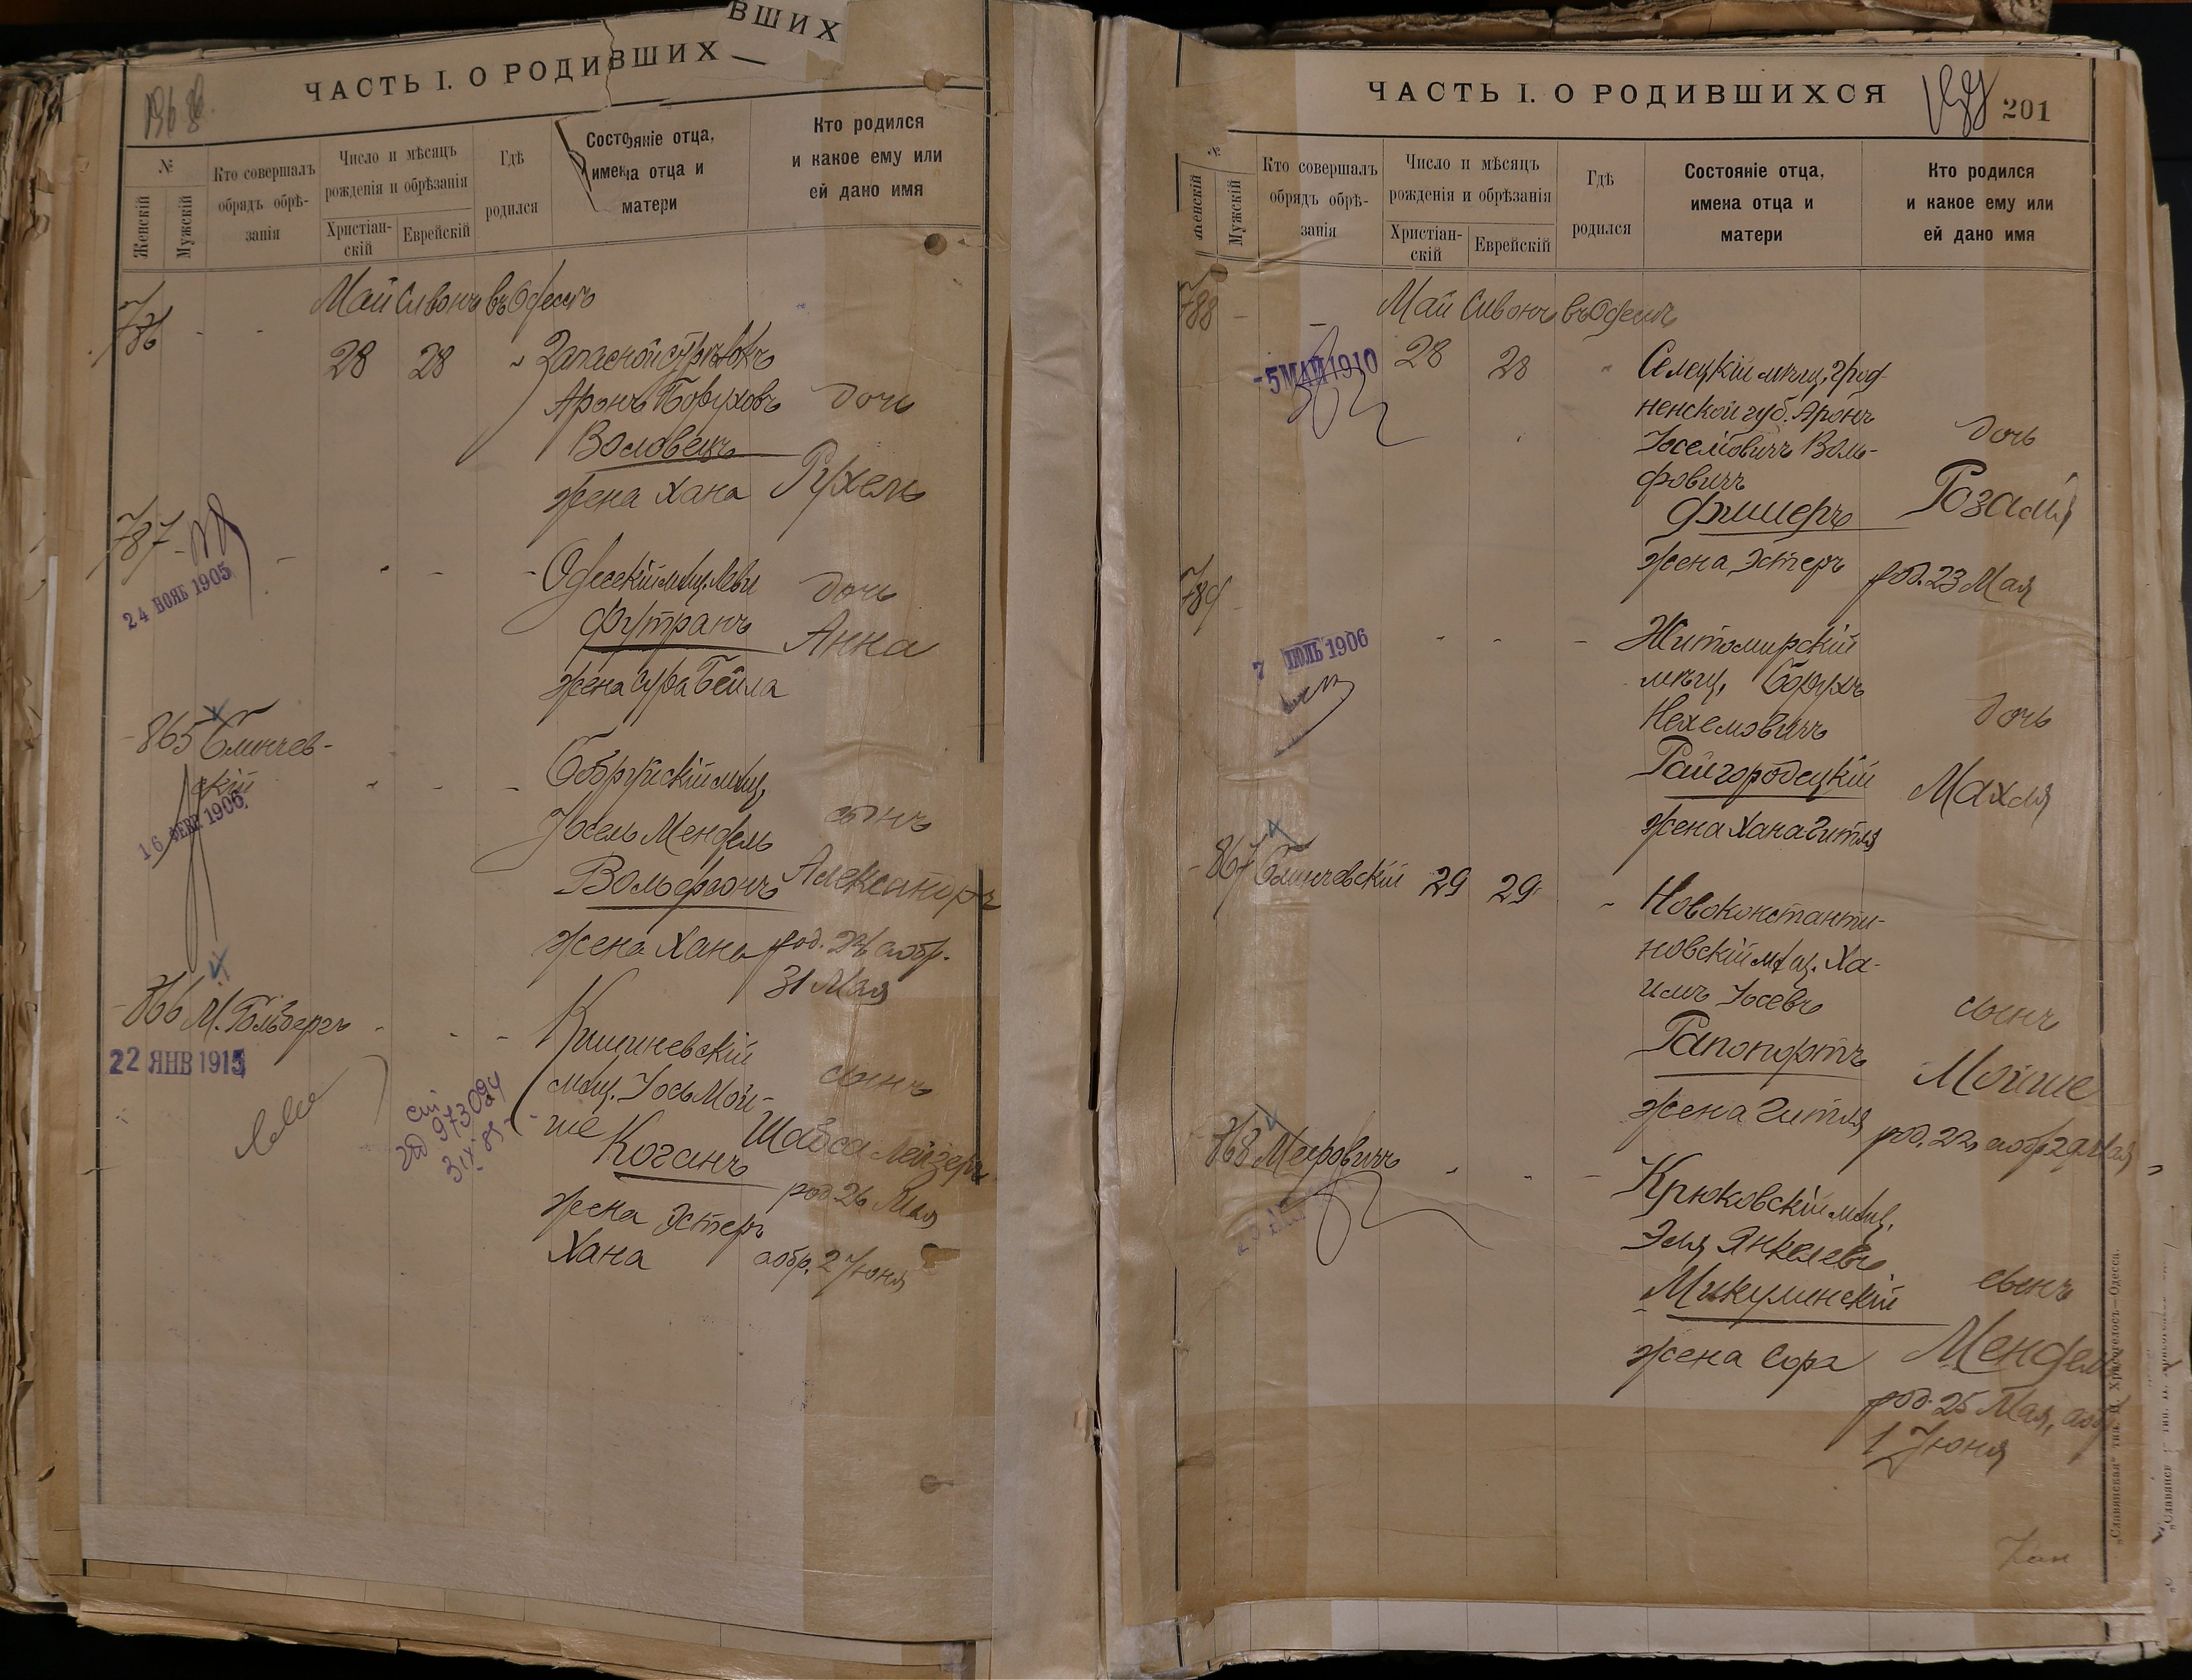 ВШИХ
ЧАСТЬ I. О РОДИВШИХ
№
Женскій
Мужскій
Кто совершалъ
обрядъ обрѣ-
занія
Число и мѣсяцъ
рожденія и обрѣзанія
Христіан-
скій
Еврейскій
Гдѣ
родился
Состояніе отца,
имена отца и
матери
Кто родился
и какое ему или
ей дано имя
Май Сивонъ въ Одессѣ
786
28 28
Запасной стрѣлокъ
Аронъ Боруховъ
дочь
Воловикъ
жена Хана
Рухель
787
24 НОЯБ 1905
Одесскій мѣщ. Леви
дочь
Футранъ
Анна
жена Сура Бейла
865 Блинчев-
скій
16 ФЕВР 1906
Бобруйскій мѣщ.
Іосель Мендель
сынъ
Вольфсонъ
Александръ
жена Хана
род. 24 аобр.
31 Мая
866 М. Гольбергъ
22 ЯНВ 1915
Кишиневскій
мѣщ. Іось Мой-
сынъ
ше Коганъ
Шабса Лейзеръ
род. 26 Мая
жена Эстеръ
Хана
аобр. 2 Іюня
973094
ЧАСТЬ I. О РОДИВШИХСЯ
201
№
Женскій
Мужскій
Кто совершалъ
обрядъ обрѣ-
занія
Число и мѣсяцъ
рожденія и обрѣзанія
Христіан-
скій
Еврейскій
Гдѣ
родился
Состояніе отца,
имена отца и
матери
Кто родился
и какое ему или
ей дано имя
788
Май Сивонъ въ Одессѣ
-5 МАЙ 1910
28 28
Селецкій мѣщ. Грод-
ненской губ. Аронъ
Іоселіовичъ Воль-
дочь
фовичъ
Фишеръ
Розалія
жена Эстеръ
род. 23 Мая
789
7 ІЮЛЬ 1906
Житомирскій
мѣщ. Борухъ
Нехемовичъ
дочь
Райгородецкій
Махля
жена Хана Гитля
867 Блинчевскій 29 29
Новоконстанти-
новскій мѣщ. Ха-
имъ Іосевъ
сынъ
Рапопортъ
Мойше
жена Гитля
род. 22, аобр 29 Мая
868 Мееровичъ
Крюковскій мѣщ.
Эля Янкелевъ
сынъ
Микулинскій
Мендель
жена Сора
род. 25 Мая, аобр
1 Іюня
„Славянская“ тип. Н. Хрисогелосъ—Одесса.